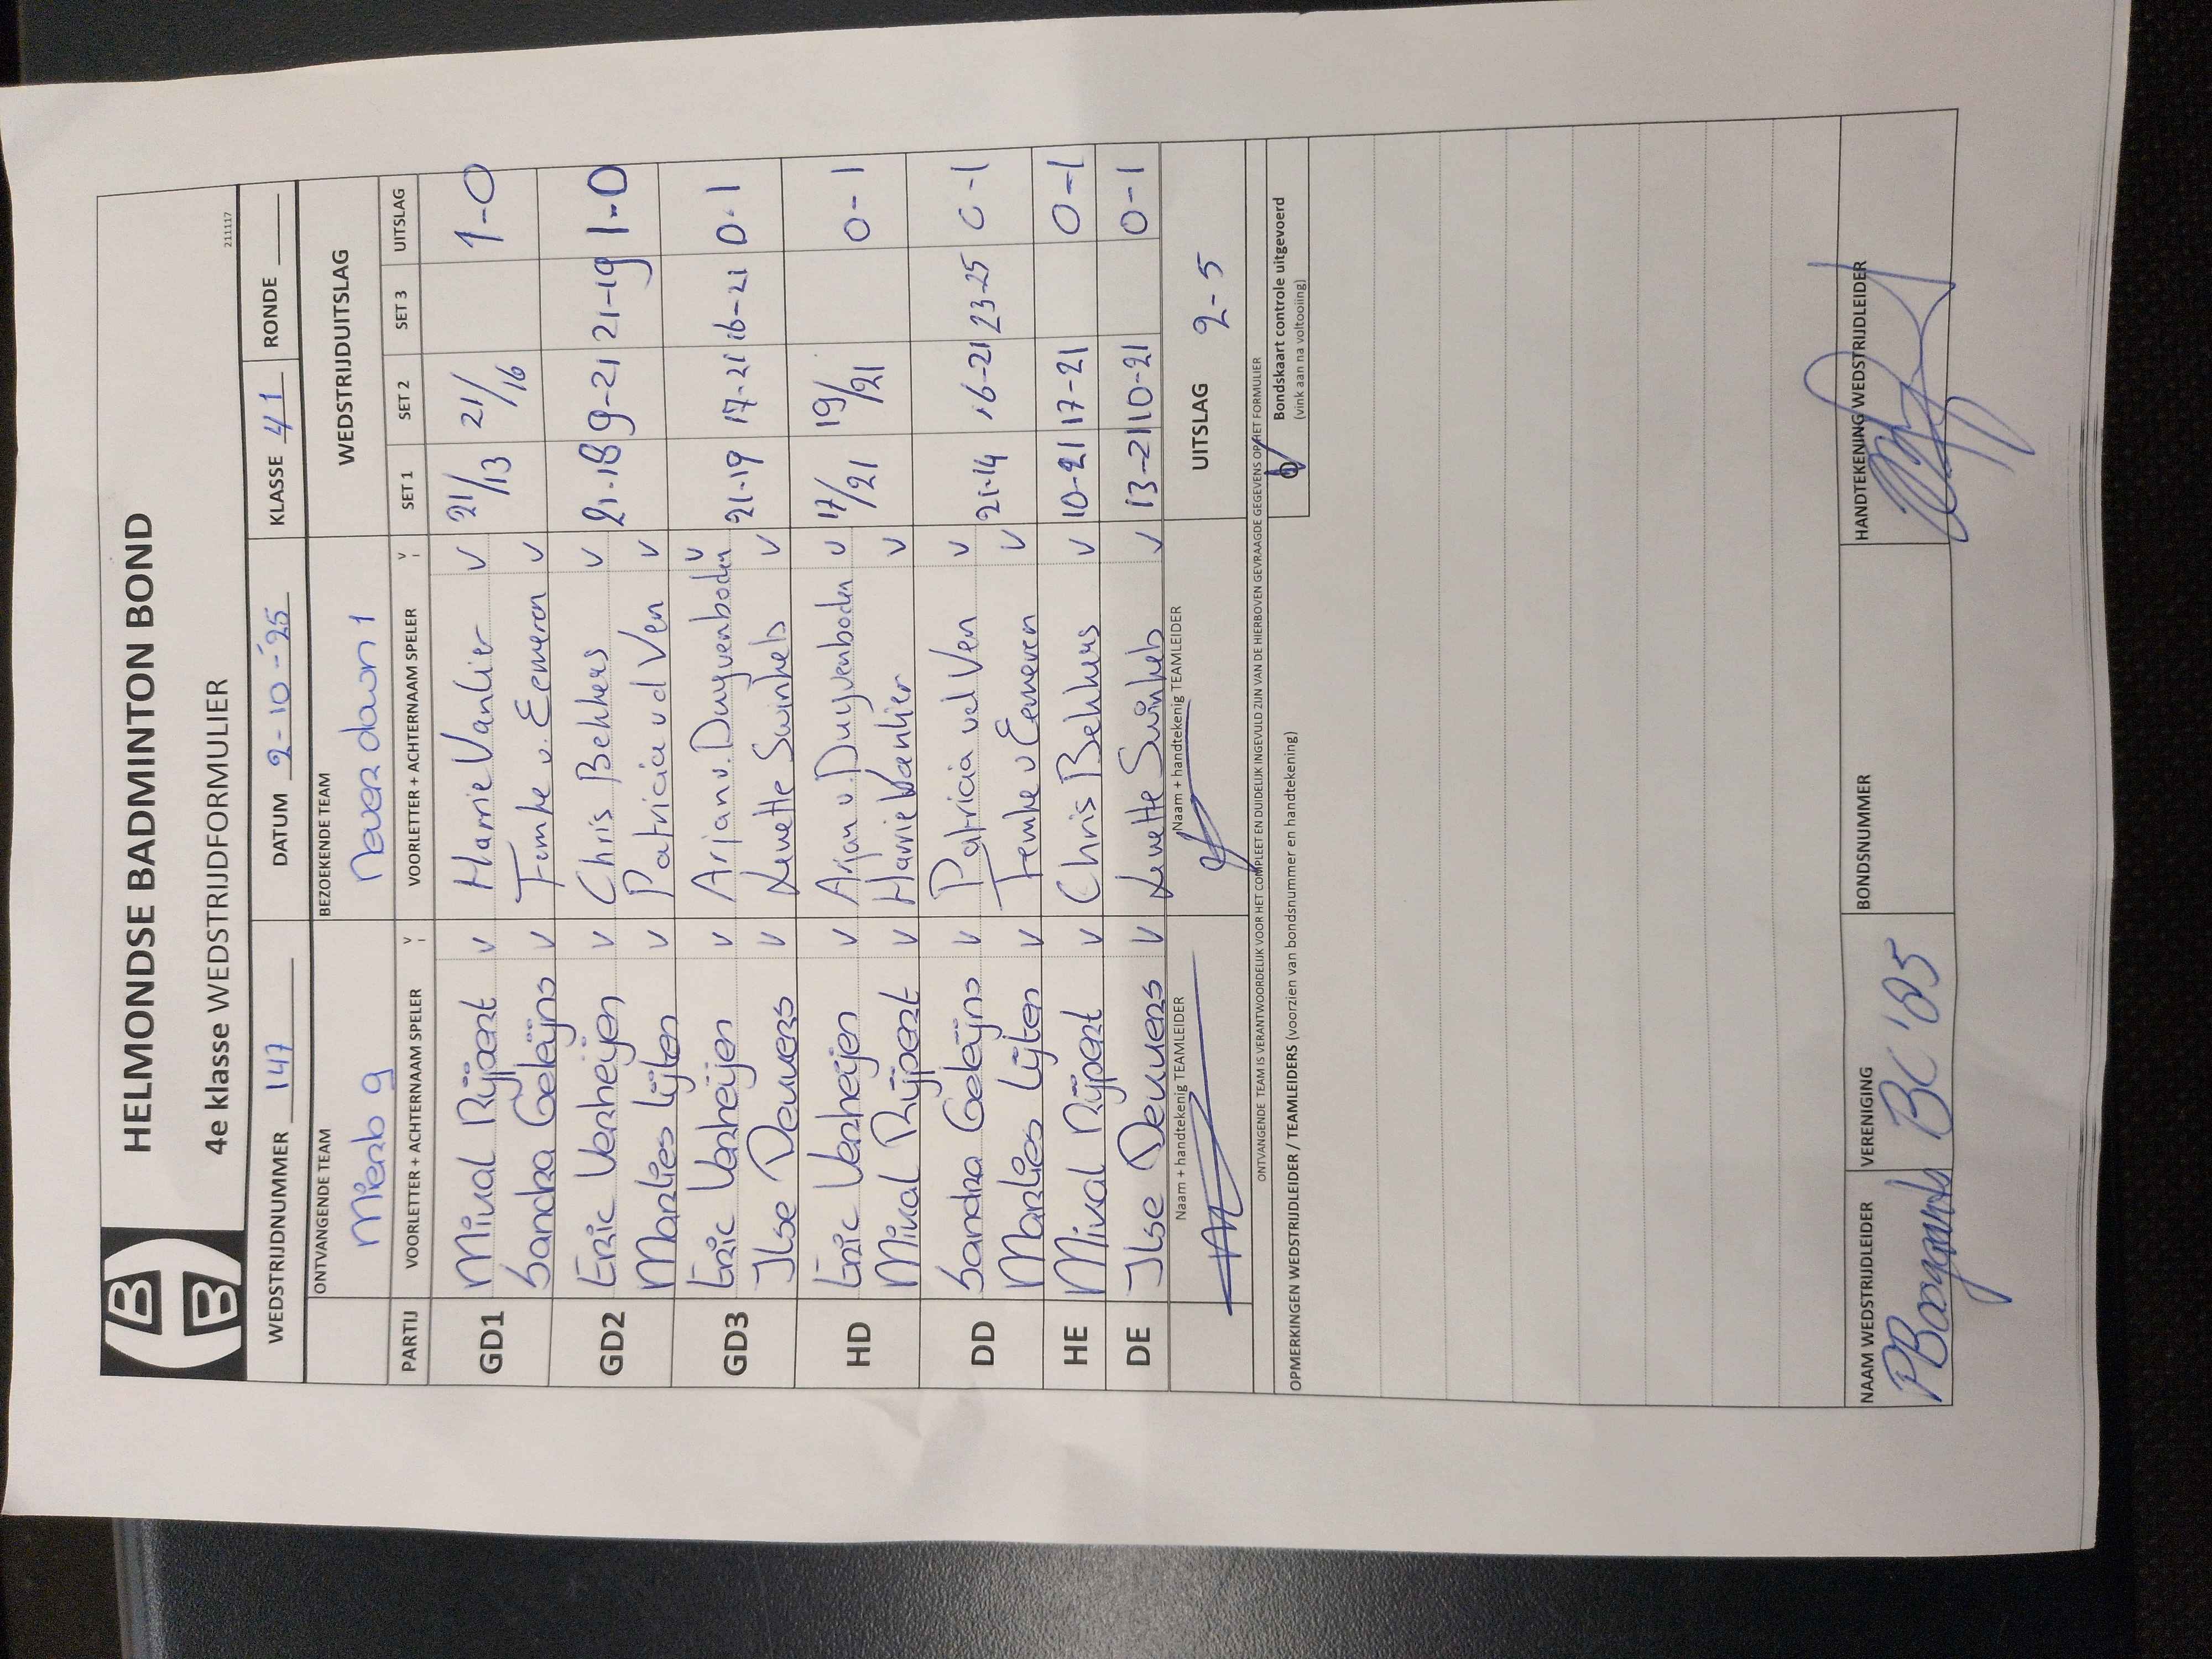 HELMONDSE BADMINTON BOND
4e klasse WEDSTRIJDFORMULIER
211117
WEDSTRIJDNUMMER 147 DATUM 2-10-'25 KLASSE 41 RONDE
ONTVANGENDE TEAM BEZOEKENDE TEAM WEDSTRIJDUITSLAG
Mierlo 9 never down 1
PARTIJ VOORLETTER + ACHTERNAAM SPELER V VOORLETTER + ACHTERNAAM SPELER V SET 1 SET 2 SET 3 UITSLAG
GD1 Mival Rijpert v Harrie Vanlier v 21/13 21/16 1-0
Sandra Geleijns v Femke v. Eemeren v
GD2 Eric Verheijen v Chris Bekkers v 21-18 9-21 21-19 1-0
Marlies Lijten v Patricia vd Ven v
GD3 Eric Verheijen v Arjan v. Duyvenboden v 21-19 17-21 16-21 0-1
Ilse Deuvers v Lenette Swinkels v
HD Eric Verheijen v Arjan v. Duyvenboden v 17/21 19/21 0-1
Mival Rijpert v Harrie Vanlier v
DD Sandra Geleijns v Patricia vd Ven v 21-14 16-21 23-25 0-1
Marlies Lijten v Femke v Eemeren v
HE Mival Rijpert v Chris Bekkers v 10-21 17-21 0-1
DE Ilse Deuvers v Lenette Swinkels v 13-21 10-21 0-1
Naam + handtekenig TEAMLEIDER Naam + handtekenig TEAMLEIDER UITSLAG 2-5
ONTVANGENDE TEAM IS VERANTWOORDELIJK VOOR HET COMPLEET EN DUIDELIJK INGEVULD ZIJN VAN DE HIERBOVEN GEVRAAGDE GEGEVENS OP HET FORMULIER
Bondskaart controle uitgevoerd
(vink aan na voltooiing)
OPMERKINGEN WEDSTRIJDLEIDER / TEAMLEIDERS (voorzien van bondsnummer en handtekening)
NAAM WEDSTRIJDLEIDER VERENIGING BONDSNUMMER HANDTEKENING WEDSTRIJDLEIDER
BC '85